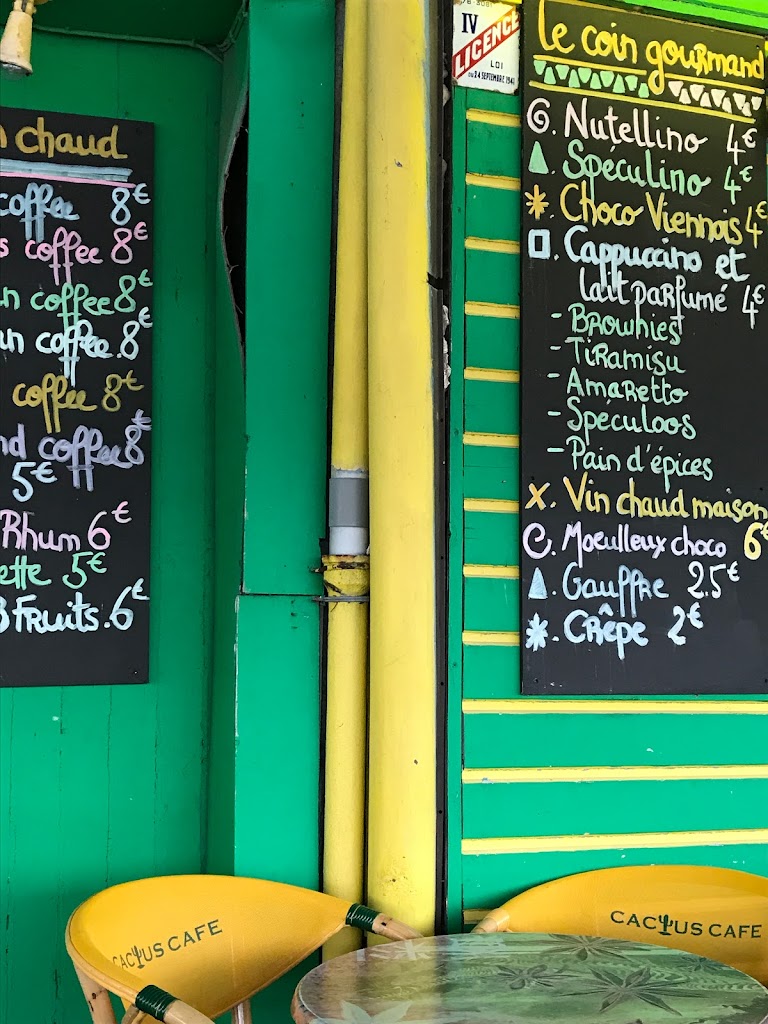 chaud
coffee 8€
s coffee 8€
n coffee 8€
an coffee. 8€
coffee 8€
nd coffee 8€
5€
Rhum 6€
ette 5€
3 Fruits. 6€
IV
LICENCE
LOI
DU 24 SEPTEMBRE 1941
le coin gourmand
Nutellino 4€
Spéculino 4€
Choco Viennois 4€
Cappuccino et
lait parfumé 4€
- Brownies
- Tiramisu
- Amaretto
- Spéculoos
- Pain d'épices
x. Vin chaud maison
Moelleux choco 6€
Gauffre 2.5€
Crêpe 2€
CACTUS CAFE
CACTUS CAFE